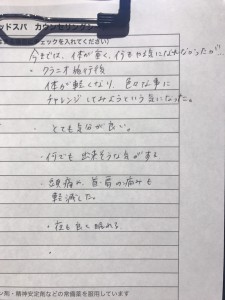 ッドスパ カウンセリング
チェックを入れてください)
今までは、体が重く、何をやる気になれなかったが
・クラニオ施行後
体が軽くなり、色々な事に
チャレンジしてみようという気になった。
・とても気分が良い。
・何でも出来そうな気がする
・頭痛や、首・肩の痛みも
軽減した。
・夜も良く眠れる
・
ン剤・精神安定剤などの常備薬を服用しています